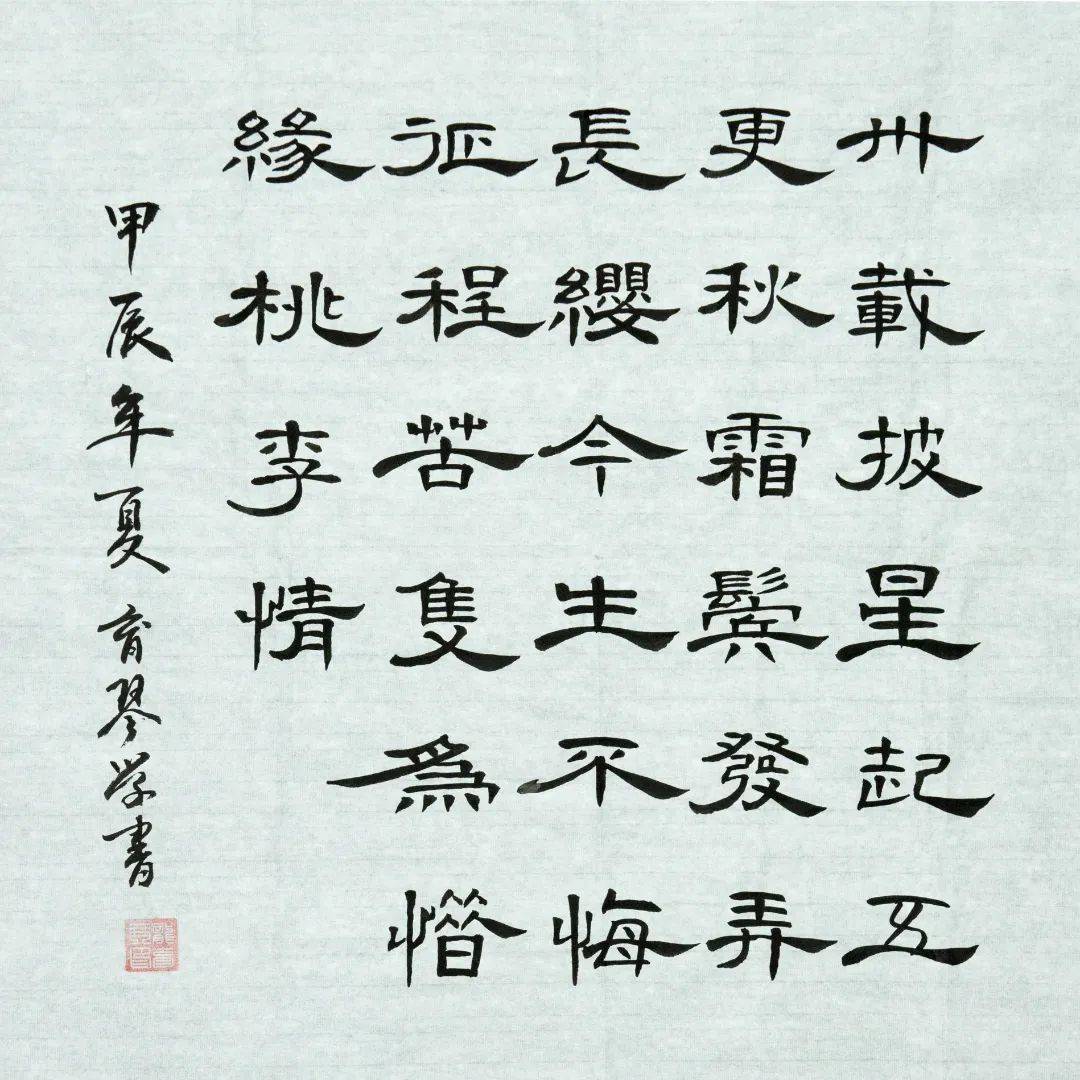 卅載披星起五
更秋霜鬢發弄
長纓今生不悔
征程苦隻為憯
緣桃李情
甲辰年夏育琴学書